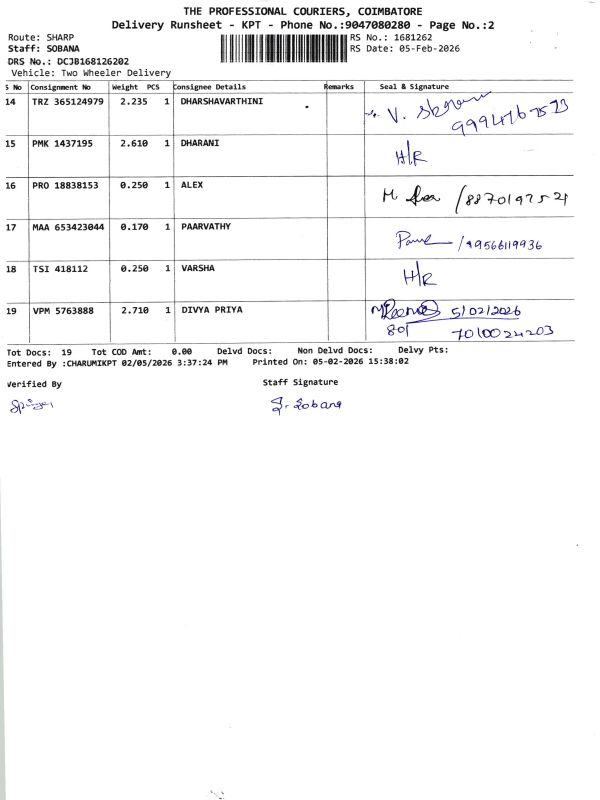 THE PROFESSIONAL COURIERS, COIMBATORE
Delivery Runsheet - KPT - Phone No.:9047080280 - Page No.:2
Route: SHARP
RS No.: 1681262
Staff: SOBANA
RS Date: 05-Feb-2026
DRS No.: DCJB168126202
Vehicle: Two Wheeler Delivery
S No Consignment No Weight PCS Consignee Details Remarks Seal & Signature
14 TRZ 365124979 2.235 1 DHARSHAVARTHINI V.
15 PMK 1437195 2.610 1 DHARANI H/R
16 PRO 18838153 0.250 1 ALEX M /8870197521
17 MAA 653423044 0.170 1 PAARVATHY /9956619936
18 TSI 418112 0.250 1 VARSHA H/R
19 VPM 5763888 2.710 1 DIVYA PRIYA 5/02/2026
801 7010024203
Tot Docs: 19 Tot COD Amt: 0.00 Delvd Docs: Non Delvd Docs: Delvy Pts:
Entered By :CHARUMIKPT 02/05/2026 3:37:24 PM Printed On: 05-02-2026 15:38:02
Verified By Staff Signature
S. Sobana